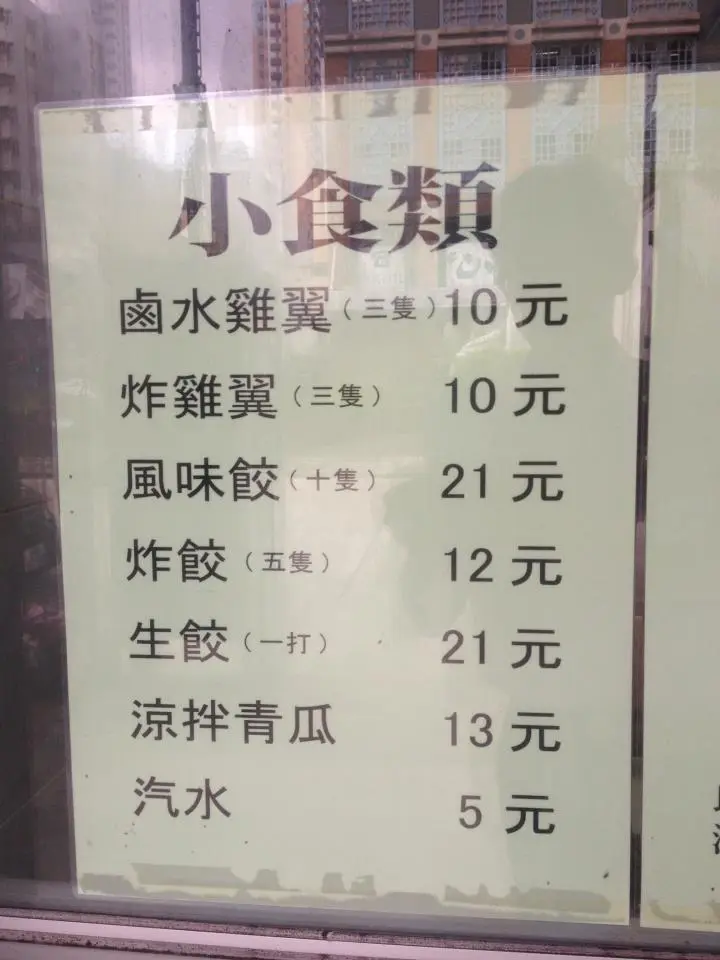 小食類
鹵水雞翼（三隻）10 元
炸雞翼（三隻） 10 元
風味餃（十隻） 21 元
炸餃（五隻） 12 元
生餃（一打） 21 元
涼拌青瓜 13 元
汽水 5 元